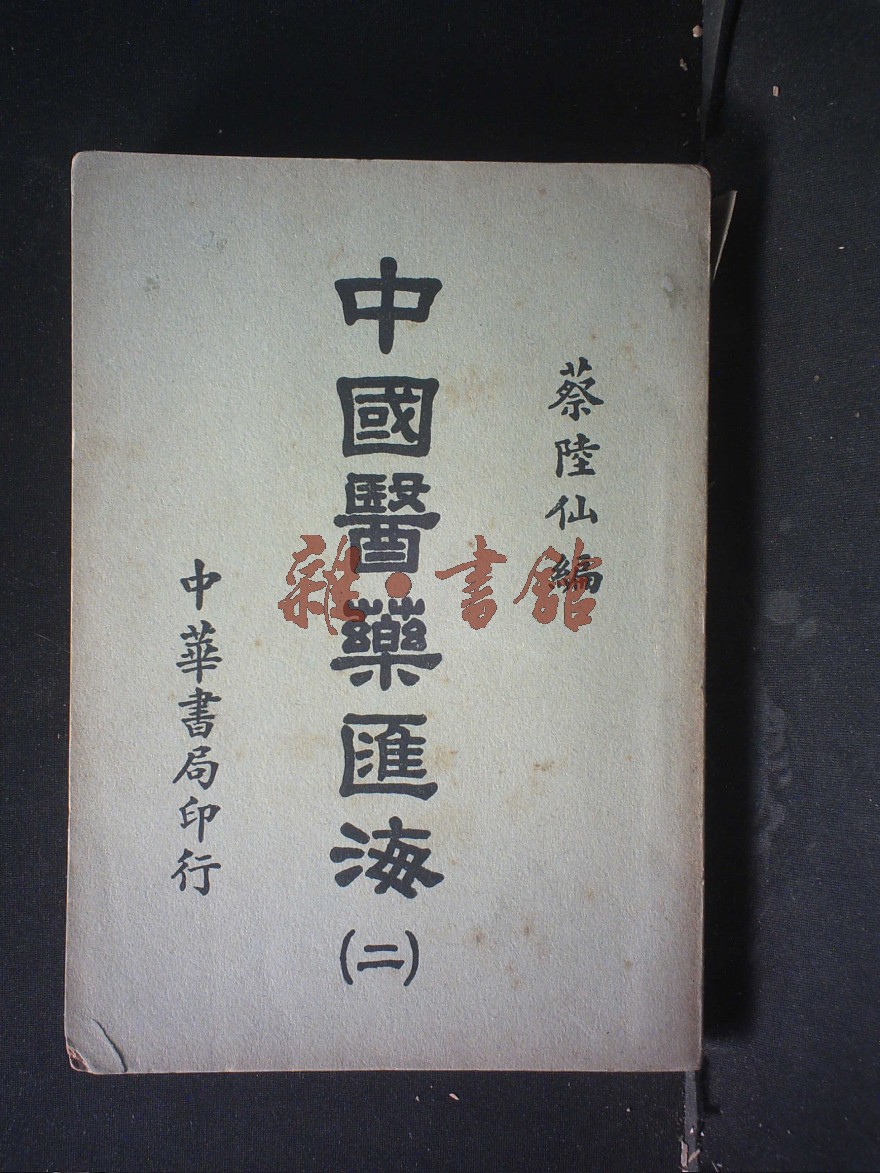 蔡陸仙編
中國醫藥匯海(二)
中華書局印行
雜·書館